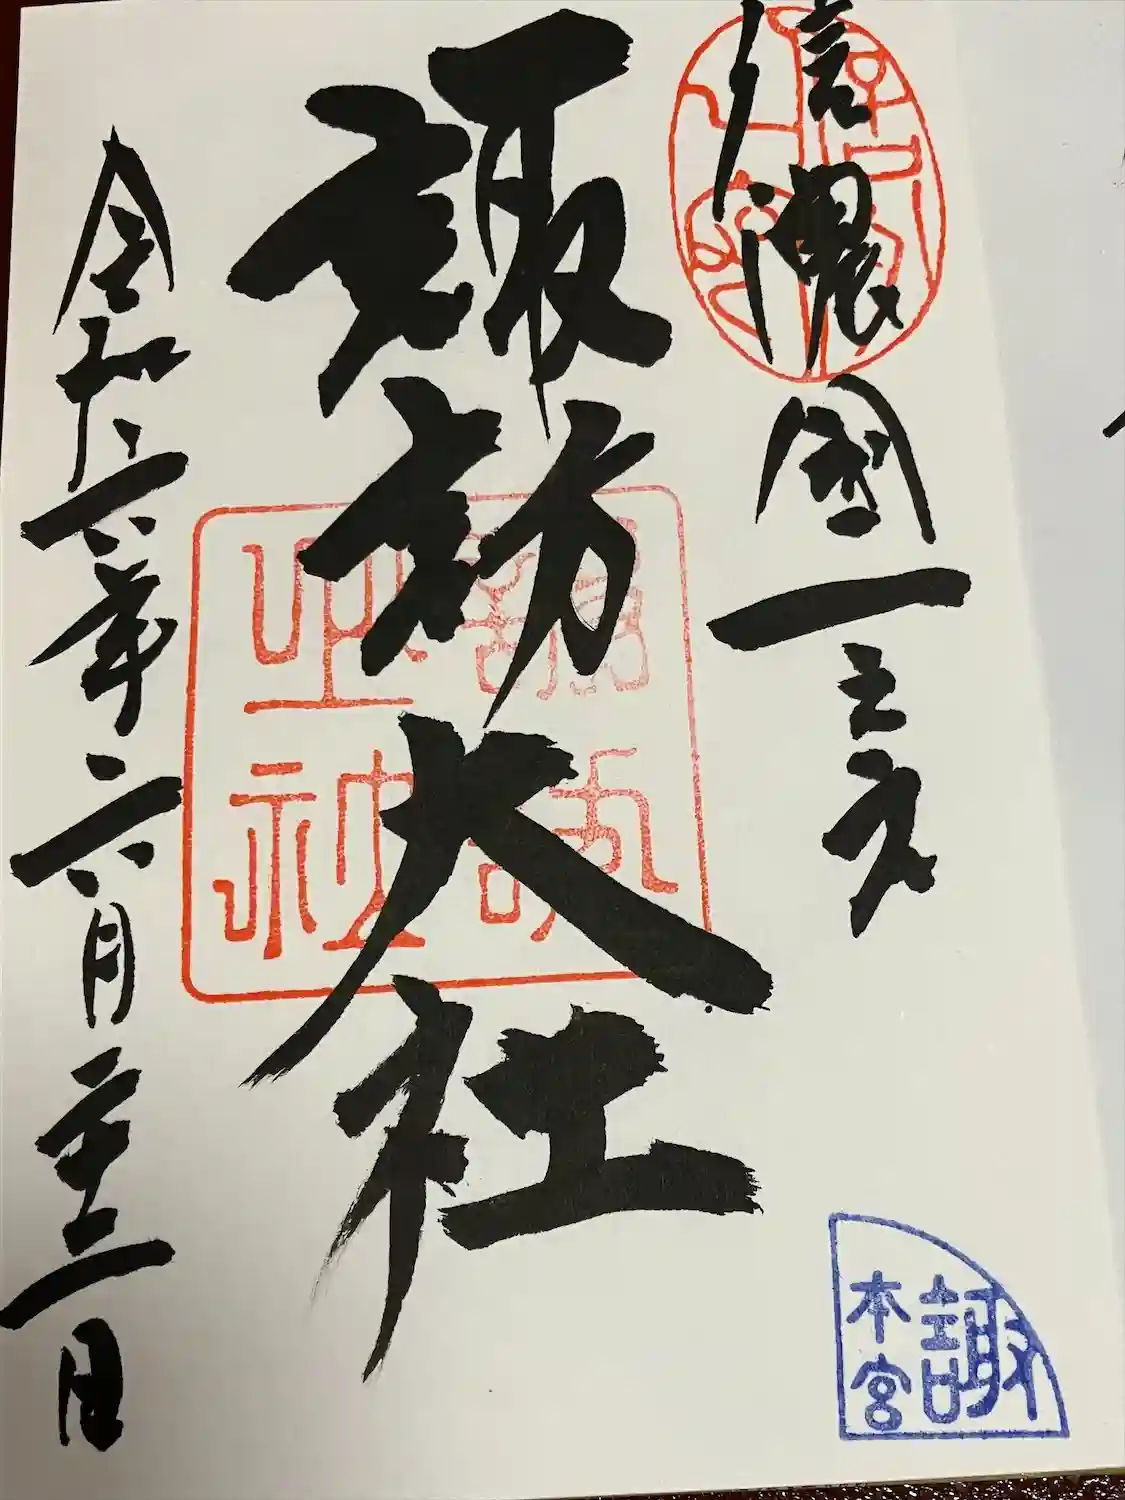 信濃國一之宮
諏訪大社
令和六年六月二十三日
諏訪
大社
諏
本宮